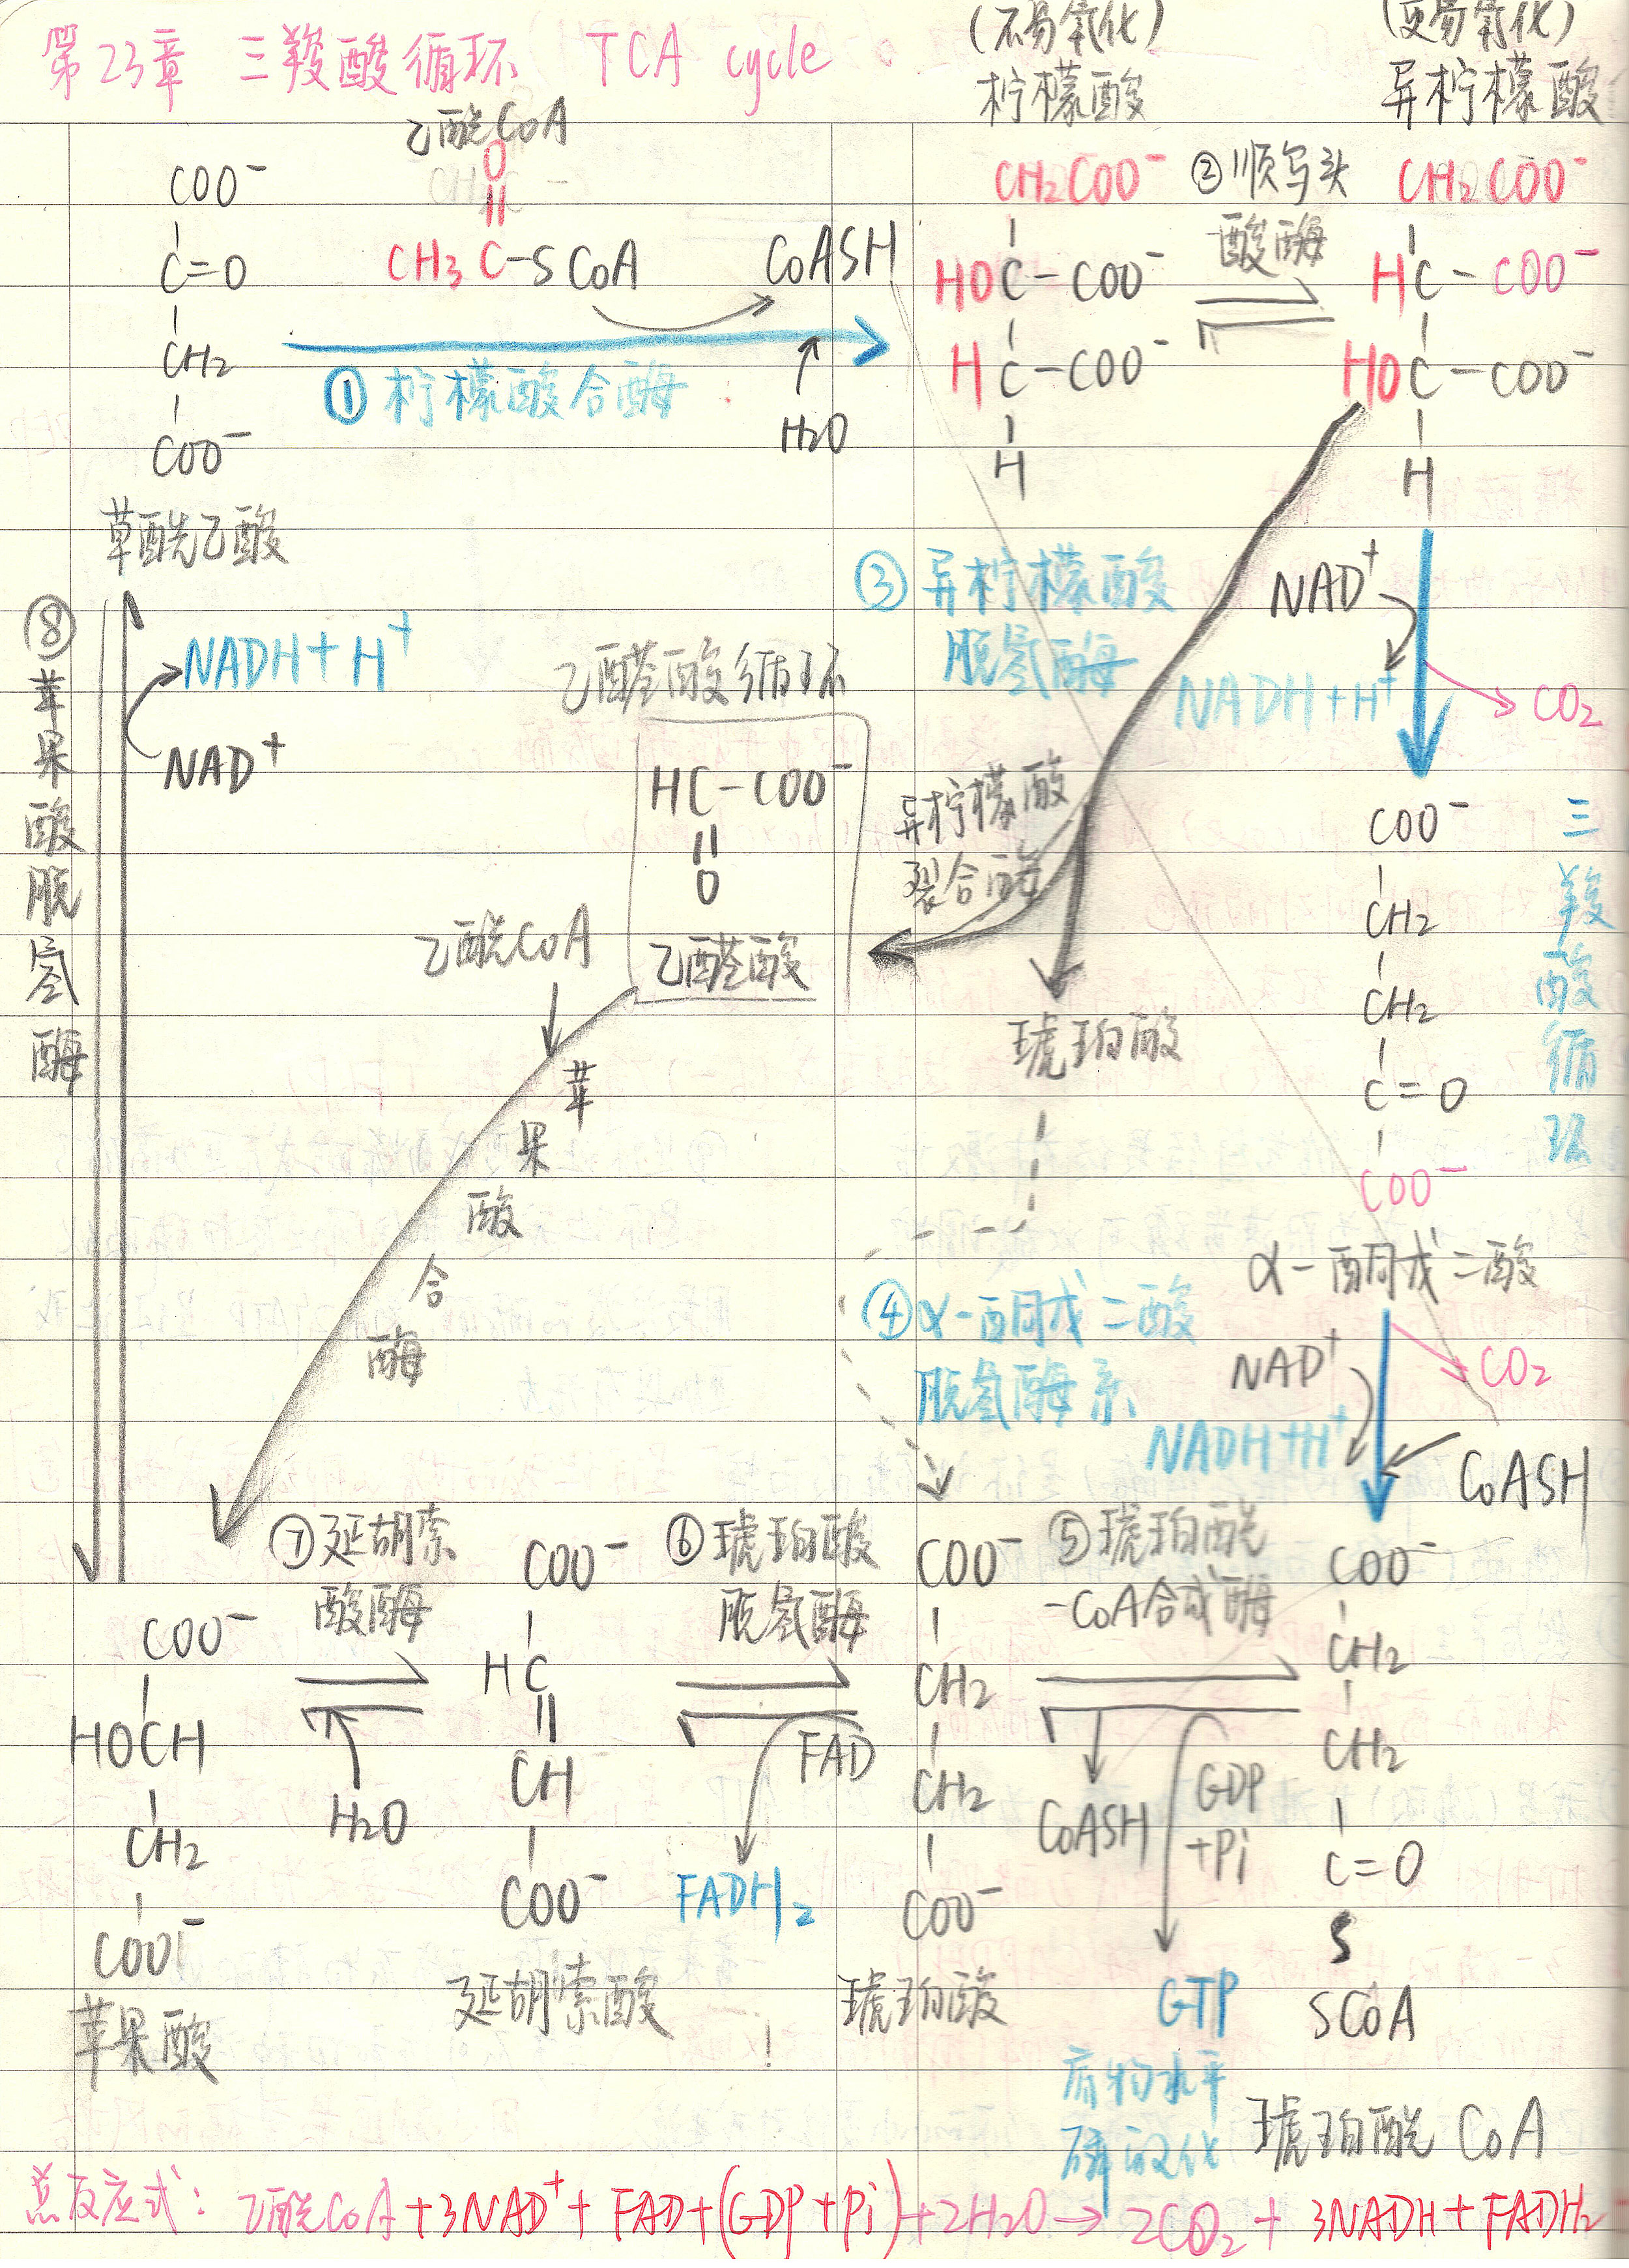 第23章 三羧酸循环 TCA cycle
(不易氧化)
柠檬酸
(更易氧化)
异柠檬酸
乙酰CoA
O
||
CH3 C-SCoA
CoASH
COO⁻
C=O
CH2
COO⁻
草酰乙酸
①柠檬酸合酶
H2O
CH2COO⁻
HOC-COO⁻
HC-COO⁻
H
②顺乌头
酸酶
CH2COO⁻
HC-COO⁻
HOC-COO⁻
H
③异柠檬酸
脱氢酶
NAD⁺
NADH+H⁺
CO2
⑧苹果酸脱氢酶
NADH+H⁺
NAD⁺
乙醛酸循环
HC-COO⁻
||
O
乙醛酸
异柠檬酸
裂合酶
乙酰CoA
苹果酸合酶
琥珀酸
COO⁻
CH2
CH2
C=O
COO⁻
α-酮戊二酸
三羧酸循环
④α-酮戊二酸
脱氢酶系
NAD⁺
NADH+H⁺
CO2
CoASH
⑦延胡索
酸酶
H2O
COO⁻
HOCH
CH2
COO⁻
苹果酸
COO⁻
HC
||
CH
COO⁻
延胡索酸
⑥琥珀酸
脱氢酶
FAD
FADH2
COO⁻
CH2
CH2
COO⁻
琥珀酸
⑤琥珀酰
-CoA合成酶
CoASH
GDP
+Pi
GTP
底物水平
磷酸化
COO⁻
CH2
CH2
C=O
S
SCoA
琥珀酰CoA
总反应式: 乙酰CoA+3NAD⁺+FAD+(GDP+Pi)+2H2O→2CO2+3NADH+FADH2